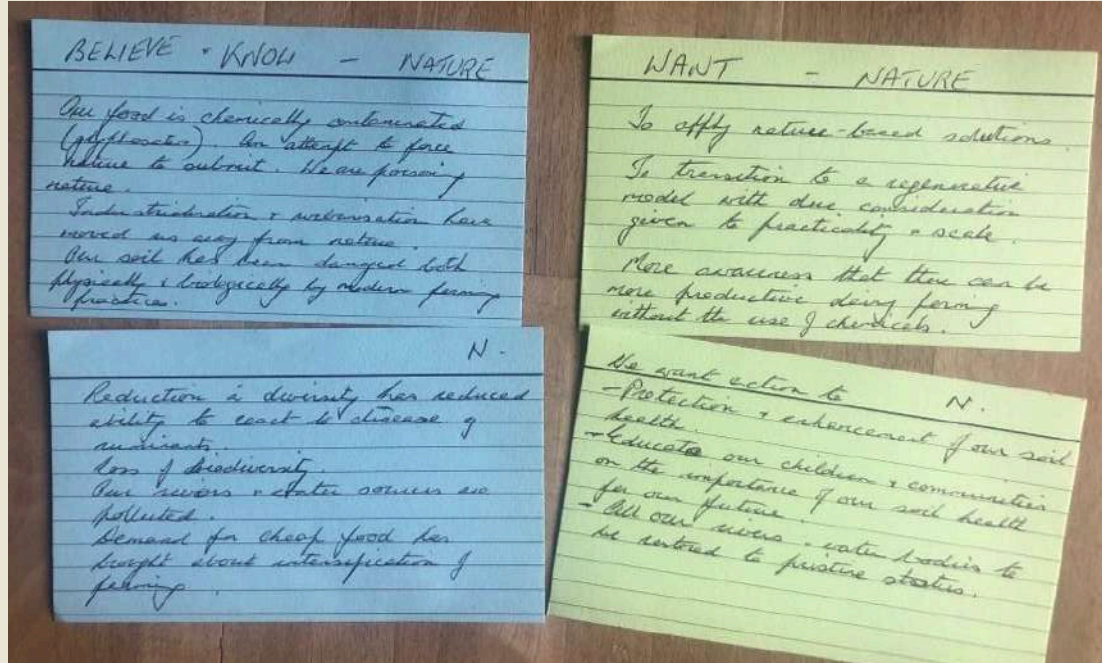 BELIEVE + KNOW - NATURE
Our food is chemically contaminated
(glyphosates). An attempt to force
nature to submit. We are poisoning
nature.
Industrialisation + urbanisation have
moved us away from nature.
Our soil has been damaged both
physically & biologically by modern farming
practices.
N.
Reduction in diversity has reduced
ability to react to disease of
ruminants.
Loss of biodiversity.
Our rivers + water sources are
polluted.
Demand for cheap food has
brought about intensification of
farming.
WANT - NATURE
To apply nature-based solutions.
To transition to a regenerative
model with due consideration
given to practicality + scale.
More awareness that there can be
more productive dairy farming
without the use of chemicals.
We want action to N.
- Protection + enhancement of our soil
health.
- Educate our children + communities
on the importance of our soil health
for our future.
- All our rivers + water bodies to
be restored to pristine status.